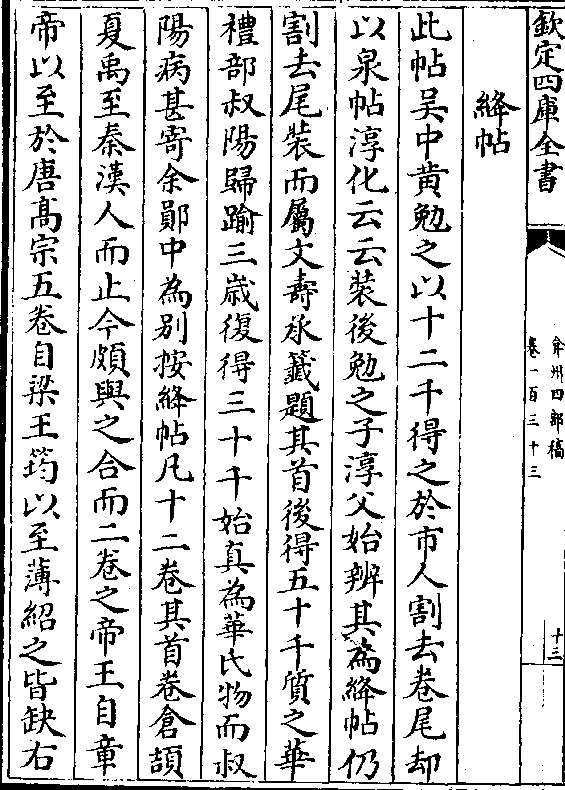 欽定四庫全書
弇州四部稿
卷一百三十三
十三
絳帖
此帖吴中黄勉之以十二千得之於市人割去卷尾却
以泉帖淳化云云裝後勉之子淳父始辨其為絳帖仍
割去尾裝而屬文壽承籤題其首後得五十千質之華
禮部叔陽歸踰三嵗復得三十千始真為華氏物而叔
陽病甚寄余鄖中為别按絳帖凡十二卷其首卷倉頡
夏禹至秦漢人而止今頗與之合而二卷之帝王自章
帝以至於唐髙宗五卷自梁王筠以至薄紹之皆缺右